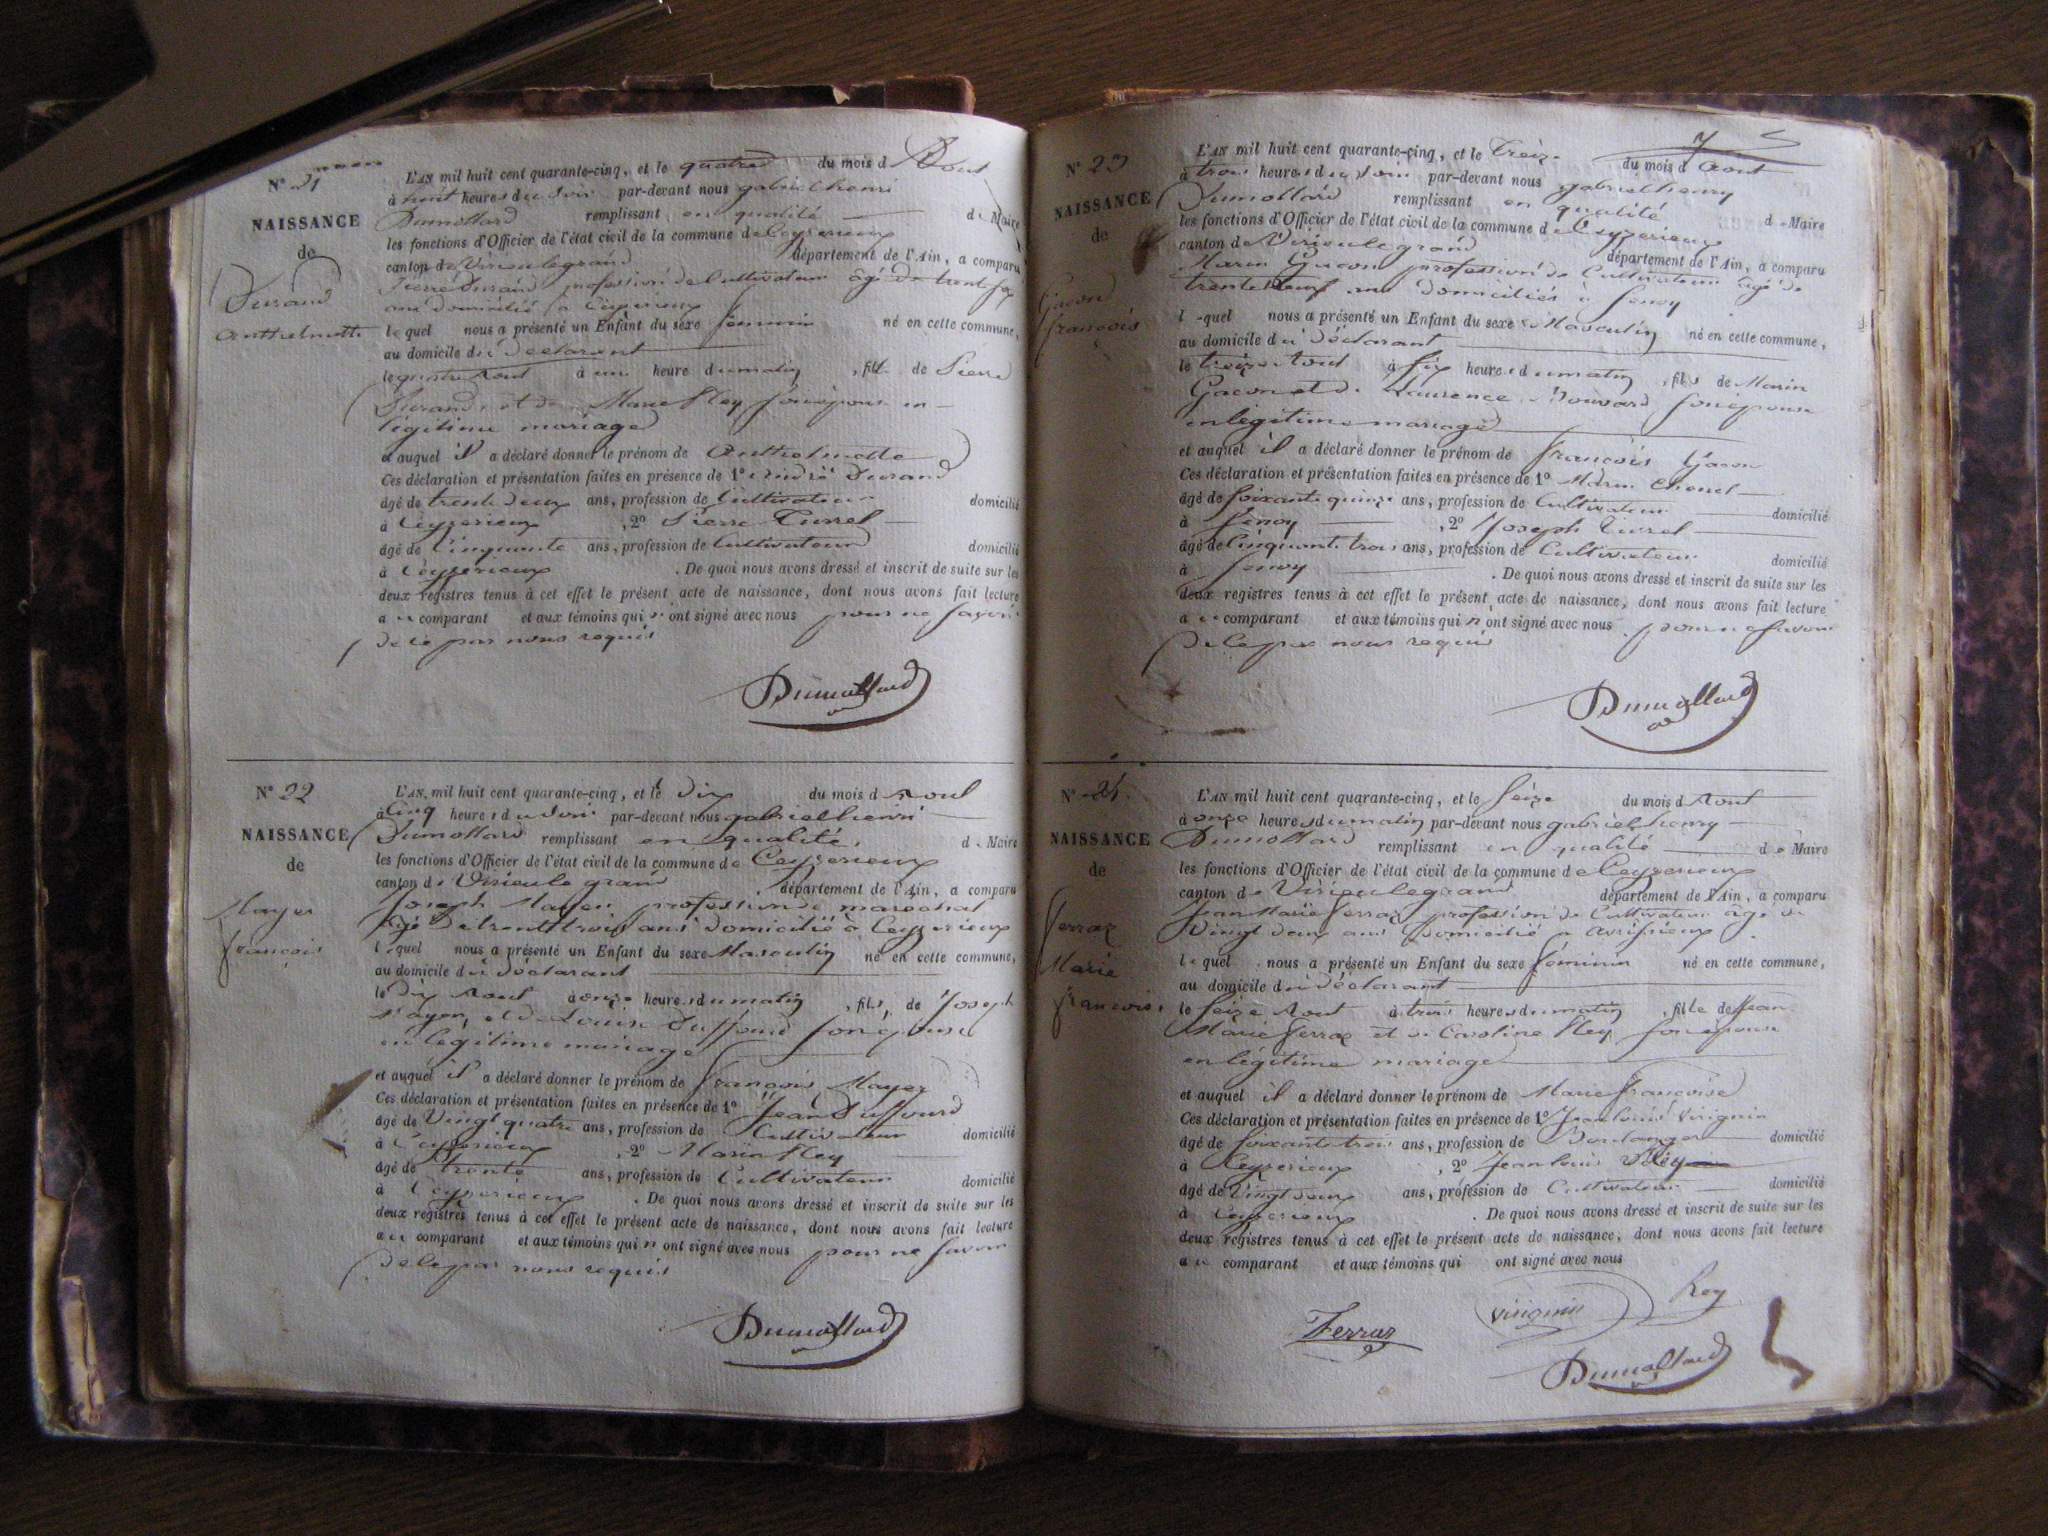 N° 21
NAISSANCE
de
Durand
Anthelmette
L'AN mil huit cent quarante-cinq, et le quatre du mois d Aout
à huit heures du soir par-devant nous gabriel henri
Dumollard remplissant en qualité de Maire
les fonctions d'Officier de l'état civil de la commune de Ceyzerieux
canton de Virieulegrand département de l'Ain, a comparu
Pierre Durand profession de Cultivateur âgé de trente six
ans domicilié à Ceyzerieux
lequel nous a présenté un Enfant du sexe féminin né en cette commune,
au domicile du déclarant
le quatre Aout à une heure du matin, fille de Pierre
Durand, et de Marie Rey son épouse en
légitime mariage
et auquel il a déclaré donner le prénom de Anthelmette
Ces déclaration et présentation faites en présence de 1° André Durand
âgé de trente deux ans, profession de Cultivateur domicilié
à Ceyzerieux, 2° Pierre Turrel
âgé de Cinquante ans, profession de Cultivateur domicilié
à Ceyzerieux. De quoi nous avons dressé et inscrit de suite sur les
deux registres tenus à cet effet le présent acte de naissance, dont nous avons fait lecture
au comparant et aux témoins qui n'ont signé avec nous pour ne savoir
de ce par nous requis
Dumollard
N° 22
NAISSANCE
de
Mayer
françois
L'AN mil huit cent quarante-cinq, et le dix du mois d Aout
à Cinq heures du soir par-devant nous gabriel henri
Dumollard remplissant en qualité, de Maire
les fonctions d'Officier de l'état civil de la commune de Ceyzerieux
canton de Virieule grand, département de l'Ain, a comparu
Joseph Mayer profession de maréchal
âgé de trente trois ans domicilié à Ceyzerieux
lequel nous a présenté un Enfant du sexe Masculin né en cette commune,
au domicile du déclarant
le Dix Aout à onze heures du matin, fils, de Joseph
Mayer, et de Louise Duffourd son épouse
en légitime mariage
et auquel il a déclaré donner le prénom de françois Mayer
Ces déclaration et présentation faites en présence de 1° Jean Duffourd
âgé de Vingt quatre ans, profession de Cultivateur domicilié
à Ceyzerieux, 2° Marin Rey
âgé de trente ans, profession de Cultivateur domicilié
à Ceyzerieux. De quoi nous avons dressé et inscrit de suite sur les
deux registres tenus à cet effet le présent acte de naissance, dont nous avons fait lecture
au comparant et aux témoins qui n ont signé avec nous pour ne savoir
de ce par nous requis
Dumollard
N° 23
NAISSANCE
de
Gacon
françois
L'AN mil huit cent quarante-cinq, et le treize du mois d Aout
à trois heures du soir par-devant nous gabriel henry
Dumollard remplissant en qualité de Maire
les fonctions d'Officier de l'état civil de la commune de Ceyzerieux
canton de Virieulegrand département de l'Ain, a comparu
Marin Gacon profession de Cultivateur âgé de
trente neuf ans domiciliés à
lequel nous a présenté un Enfant du sexe Masculin né en cette commune,
au domicile du déclarant
le treize Aout à six heures du matin, fils de Marin
Gacon et de Laurence Bouvard son épouse
en légitime mariage
et auquel il a déclaré donner le prénom de françois Gacon
Ces déclaration et présentation faites en présence de 1° Marin
âgé de soixante quinze ans, profession de Cultivateur domicilié
à, 2° Joseph Turel
âgé de Cinquante trois ans, profession de Cultivateur domicilié
à. De quoi nous avons dressé et inscrit de suite sur les
deux registres tenus à cet effet le présent acte de naissance, dont nous avons fait lecture
au comparant et aux témoins qui n'ont signé avec nous pour ne savoir
de ce par nous requis
Dumollard
N° 24.
NAISSANCE
de
ferraz
Marie
françoise
L'AN mil huit cent quarante-cinq, et le seize du mois d Aout
à onze heures du matin par-devant nous gabriel henry
Dumollard remplissant en qualité de Maire
les fonctions d'Officier de l'état civil de la commune de Ceyzerieux
canton de Virieulegrand département de l'Ain, a comparu
Jean Marie ferraz profession de Cultivateur âgé de
Vingt deux ans domicilié a avrissieux
lequel nous a présenté un Enfant du sexe féminin né en cette commune,
au domicile du déclarant
le seize Aout à trois heures du matin, fille de Jean
Marie ferraz et de Caroline Rey son épouse
en légitime mariage
et auquel il a déclaré donner le prénom de Marie françoise
Ces déclaration et présentation faites en présence de 1° Jean louis Virignin
âgé de soixante trois ans, profession de Boulanger domicilié
à Ceyzerieux, 2° Jean louis Rey
âgé de Vingt deux ans, profession de Cultivateur domicilié
à Ceyzerieux. De quoi nous avons dressé et inscrit de suite sur les
deux registres tenus à cet effet le présent acte de naissance, dont nous avons fait lecture
au comparant et aux témoins qui ont signé avec nous
Ferraz virignin Rey
Dumollard